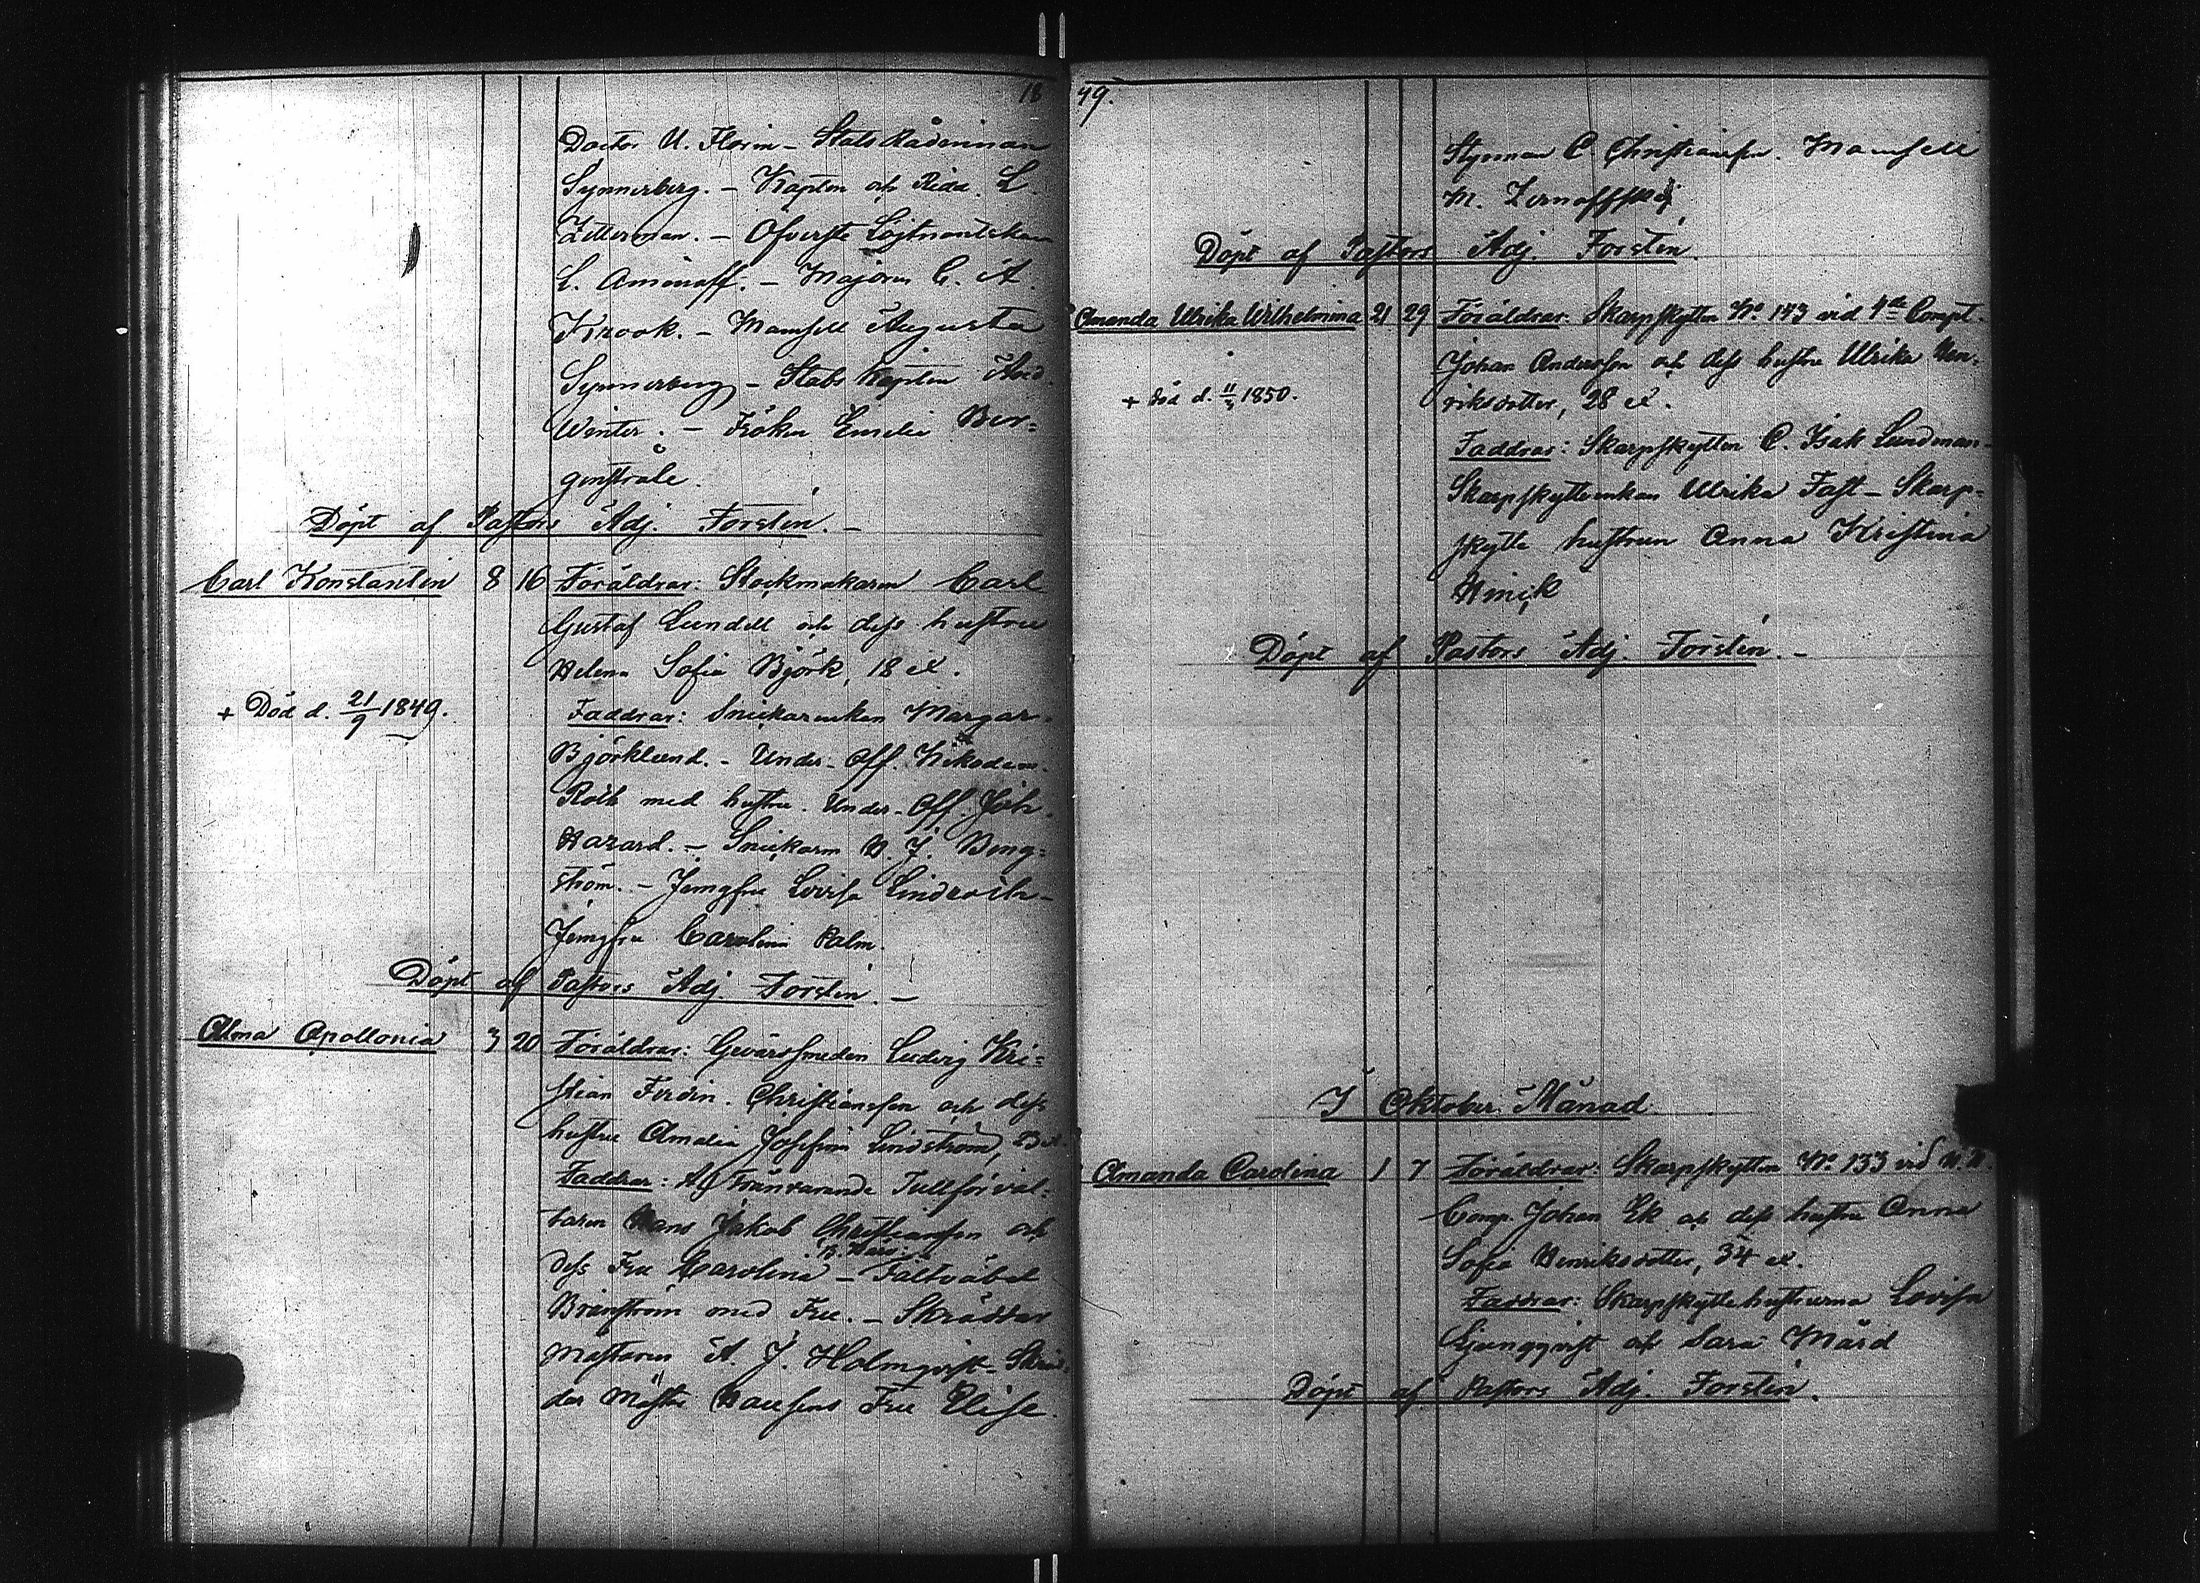 18
Doctor U. Florin - Stats Rådinnan
Synnerberg. - Kapten och Ridd. L.
Zitterman. - Öfverste Löjtnantskan
L. Aminoff. - Majoren C. A.
Krook. - Mamsell Augusta
Synnerberg - Stabs Kapten
Winter. - Fröken Emelie Ber=
genstråle.
Döpt af Pastors Adj. Forstén. -
Carl Konstantin 8 16 Föräldrar: Stockmakaren Carl
Gustaf Lundell och dess hustru
Helena Sofia Björk, 18 år.
+ Död d. 21/9 1849.
Faddrar: Snickarenkan Margar.
Björklund. - Under-Off. Nikodem.
Roth med hustru. Under-Off. Joh.
Hazard. - Snickaren J. Beng=
ström. - Jungfru Lovisa
Jungfru Carolina Palm.
Döpt af Pastors Adj. Forstén. -
Alma Apollonia 3 20 Föräldrar: Gevärssmeden Ludvig Kri=
stian Ferdin. Christiansen och dess
hustru Amalia Josefina Lindström,
Faddrar: Af Frånvarande Tullförval=
taren Hans Jakob Christiansen och
dess Fru Carolina - Fältväbel
Bränström med Fru. - Skräddar
Mästaren A. J. Holmqvist - Skräd=
dar Mäster Hansens Fru Elise.
49.
Styrman C. Christiansen. Mamsell
M.
Döpt af Pastors Adj. Forstén.
Amanda Ulrika Wilhelmina 21 29 Föräldrar: Skarpskytten No 143 vid 4de Compt.
Johan Andersson och dess hustru Ulrika Hen=
riksdotter, 28 år.
+ död d. 1850.
Faddrar: Skarpskytten C. Isak Lundman -
Skarpskytteenkan Ulrika Fast - Skarp=
skytte hustrun Anna Kristina
Döpt af Pastors Adj. Forstén. -
I Oktober Månad
Amanda Carolina 1 7 Föräldrar: Skarpskytten No 133 vid
Comp. Johan Ek och dess hustru Anna
Sofia Henriksdotter, 34 år.
Faddrar: Skarpskyttehustrurna Lovisa
Ljungqvist och Sara Mård
Döpt af Pastors Adj. Forstén.